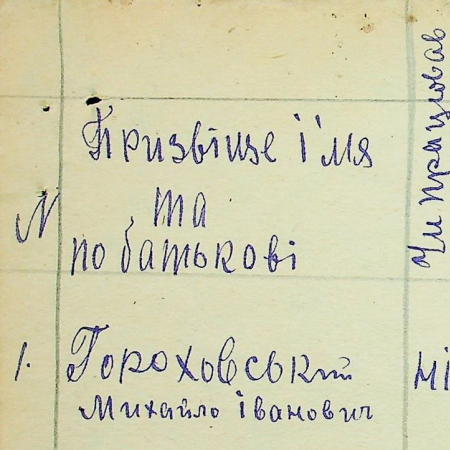 Чи працював
Призвіще і'мя
та
N
по батькові
1. Гороховський
Михайло Іванович
ні